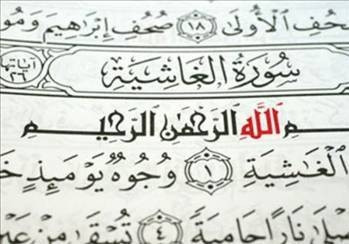 حُفِ ٱلْأُولَىٰ ١٨ صُحُفِ إِبْرَٰهِيمَ وَمُو
سُورَةُ الغَاشِيَةِ آياتها ٢٦
ـمِ ٱللَّهِ ٱلرَّحْمَٰنِ ٱلرَّحِيمِ
ٱلْغَٰشِيَةِ ١ وُجُوهٌ يَوْمَئِذٍ خَ
صْلَىٰ نَارًا حَامِيَةً ٤ تُسْقَىٰ مِنْ عَيْ